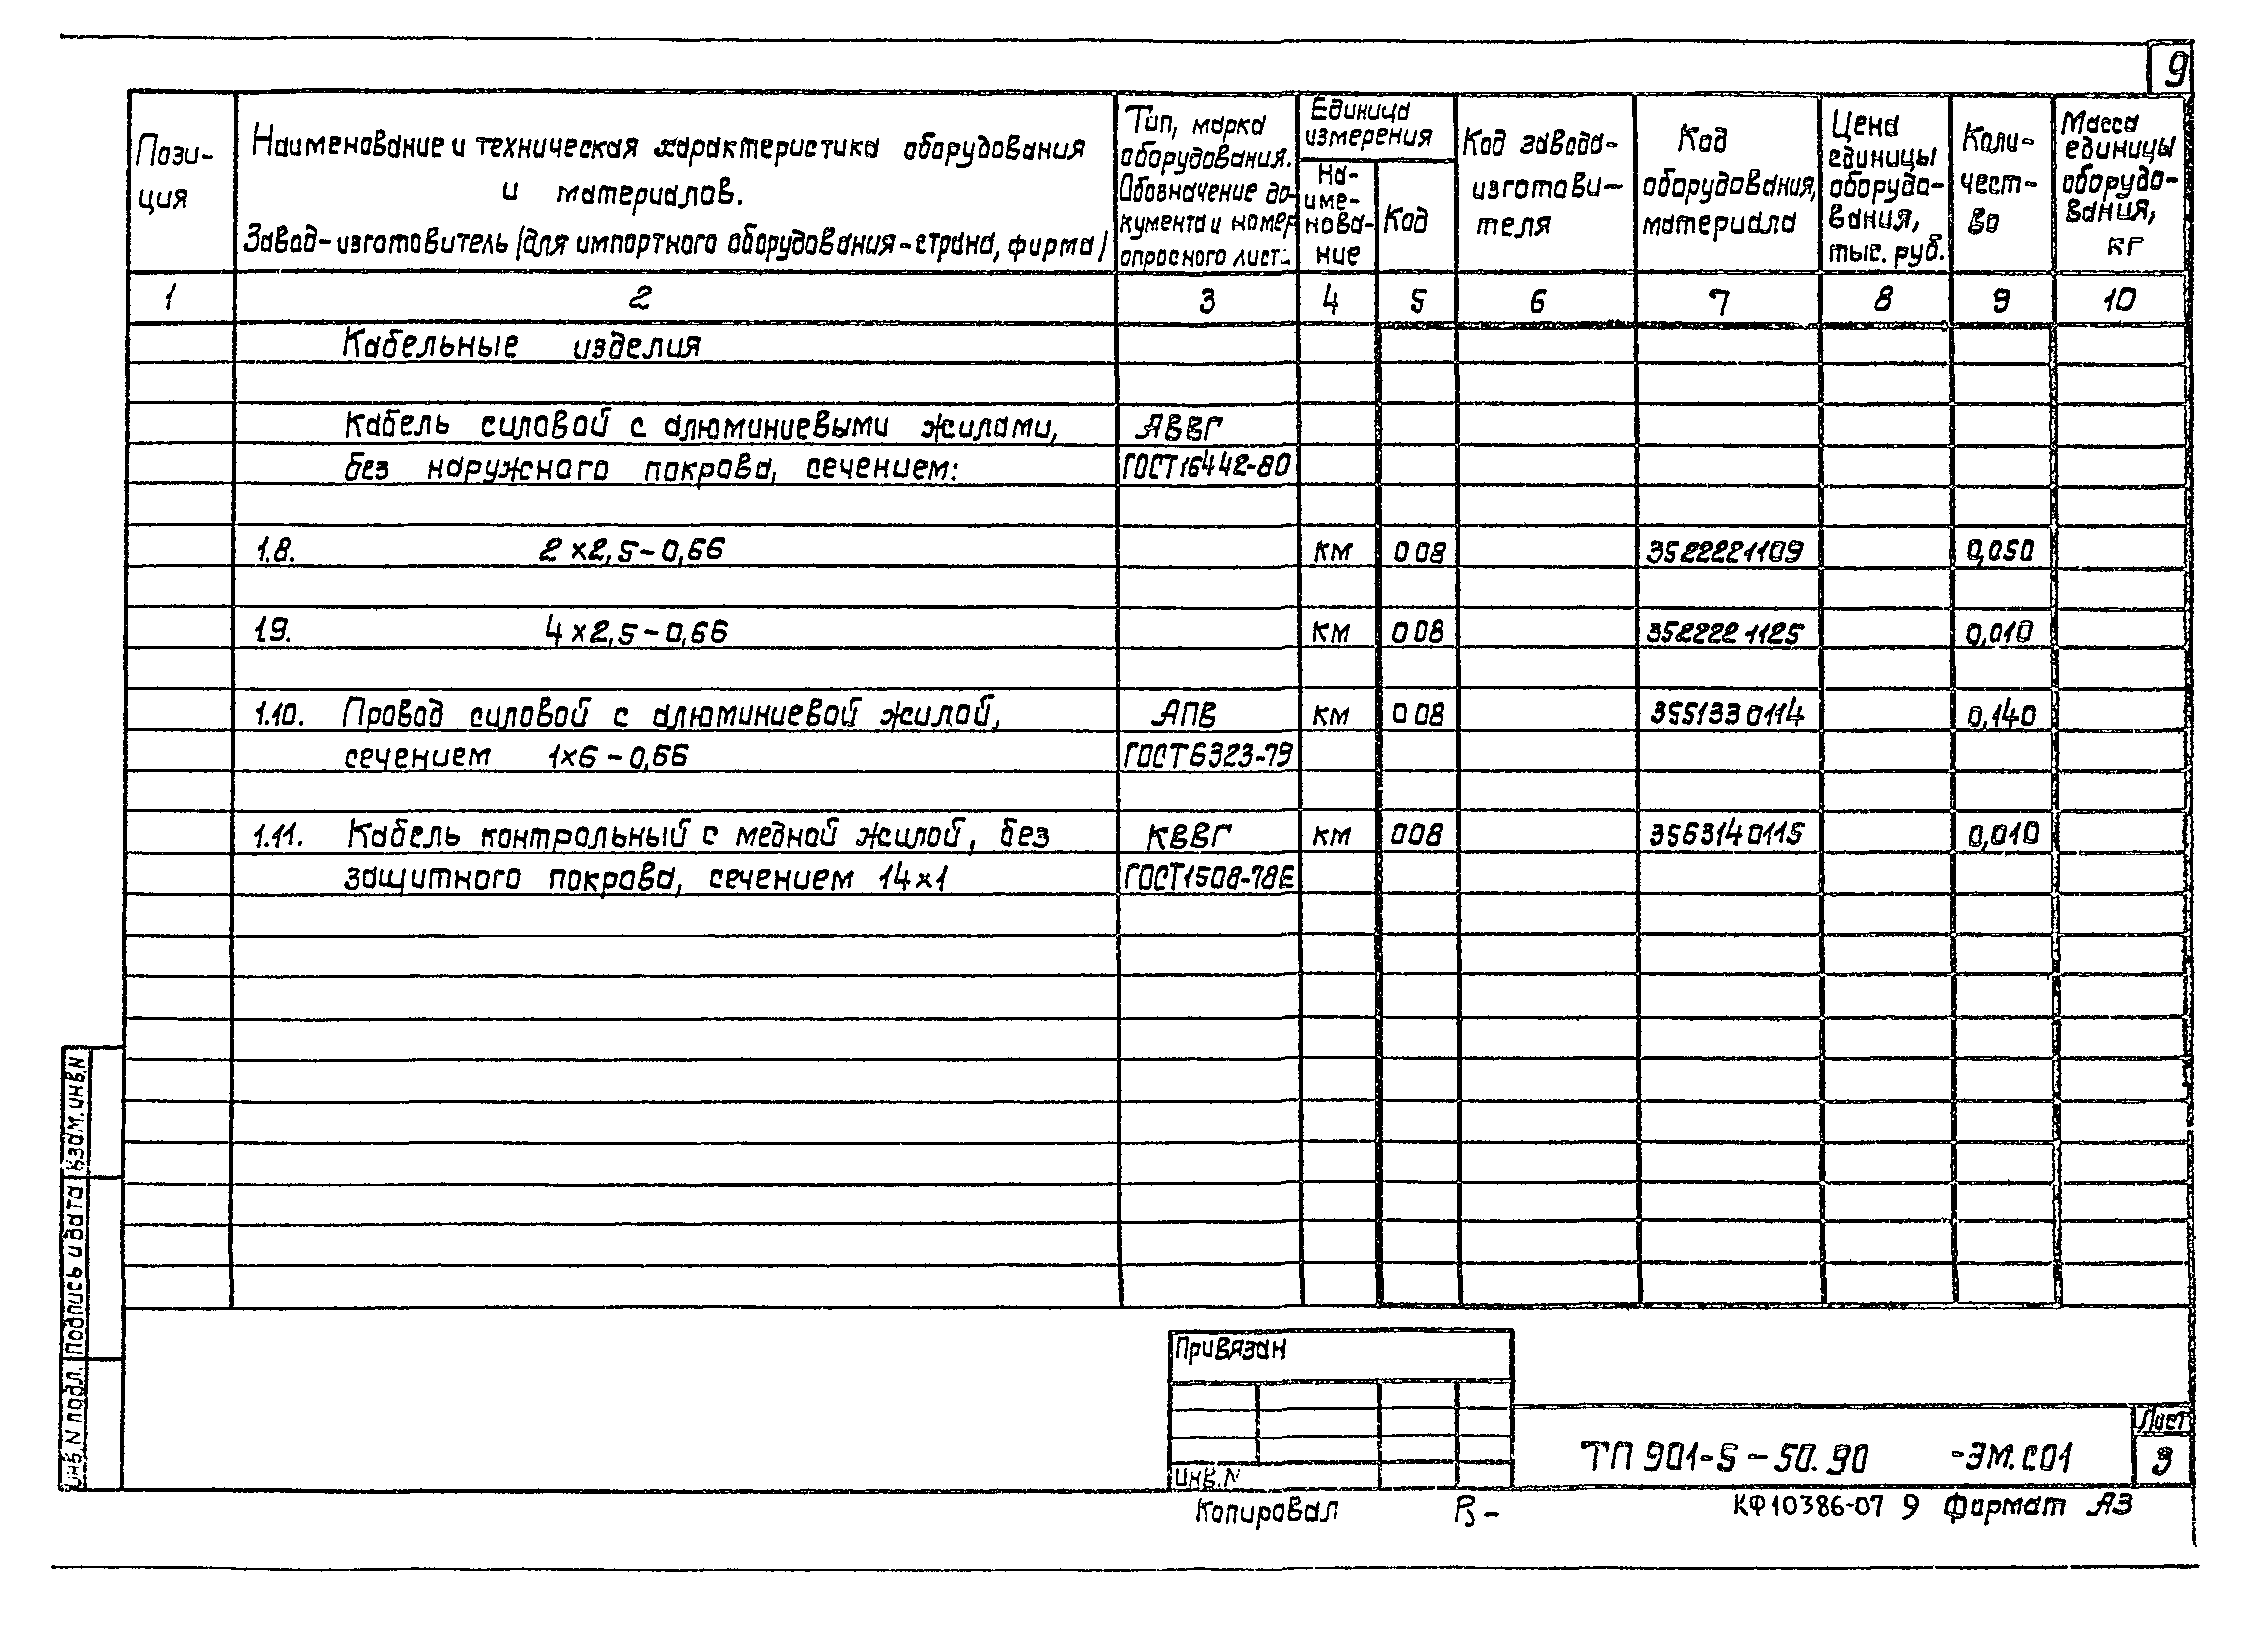 9
Пози-
ция
Наименование и техническая характеристика оборудования
и материалов.
Завод-изготовитель (для импортного оборудования-страна, фирма)
Тип, марка
оборудования.
Обозначение до-
кумента и номер
опросного лист.
Единица
измерения
На-
име-
нова-
ние
Код
Код завода-
изготови-
теля
Код
оборудования,
материала
Цена
единицы
оборудо-
вания,
тыс. руб.
Коли-
чест-
во
Масса
единицы
оборудо-
вания,
кг
1 2 3 4 5 6 7 8 9 10
Кабельные изделия
Кабель силовой с алюминиевыми жилами, АВВГ
без наружного покрова, сечением: ГОСТ16442-80
1.8. 2×2,5-0,66 км 008 3522221109 0,050
1.9. 4×2,5-0,66 км 008 3522221125 0,010
1.10. Провод силовой с алюминиевой жилой, АПВ км 008 3551330114 0,140
сечением 1×6-0,66 ГОСТ6323-79
1.11. Кабель контрольный с медной жилой, без КВВГ км 008 3563140115 0,010
защитного покрова, сечением 14×1 ГОСТ1508-78Е
Взам. инв. N
Подпись и дата
Инв. N подл.
Привязан
Инв. N
ТП 901-5-50.90 -ЭМ.СО1
Лист
3
Копировал КФ10386-07 9 Формат А3